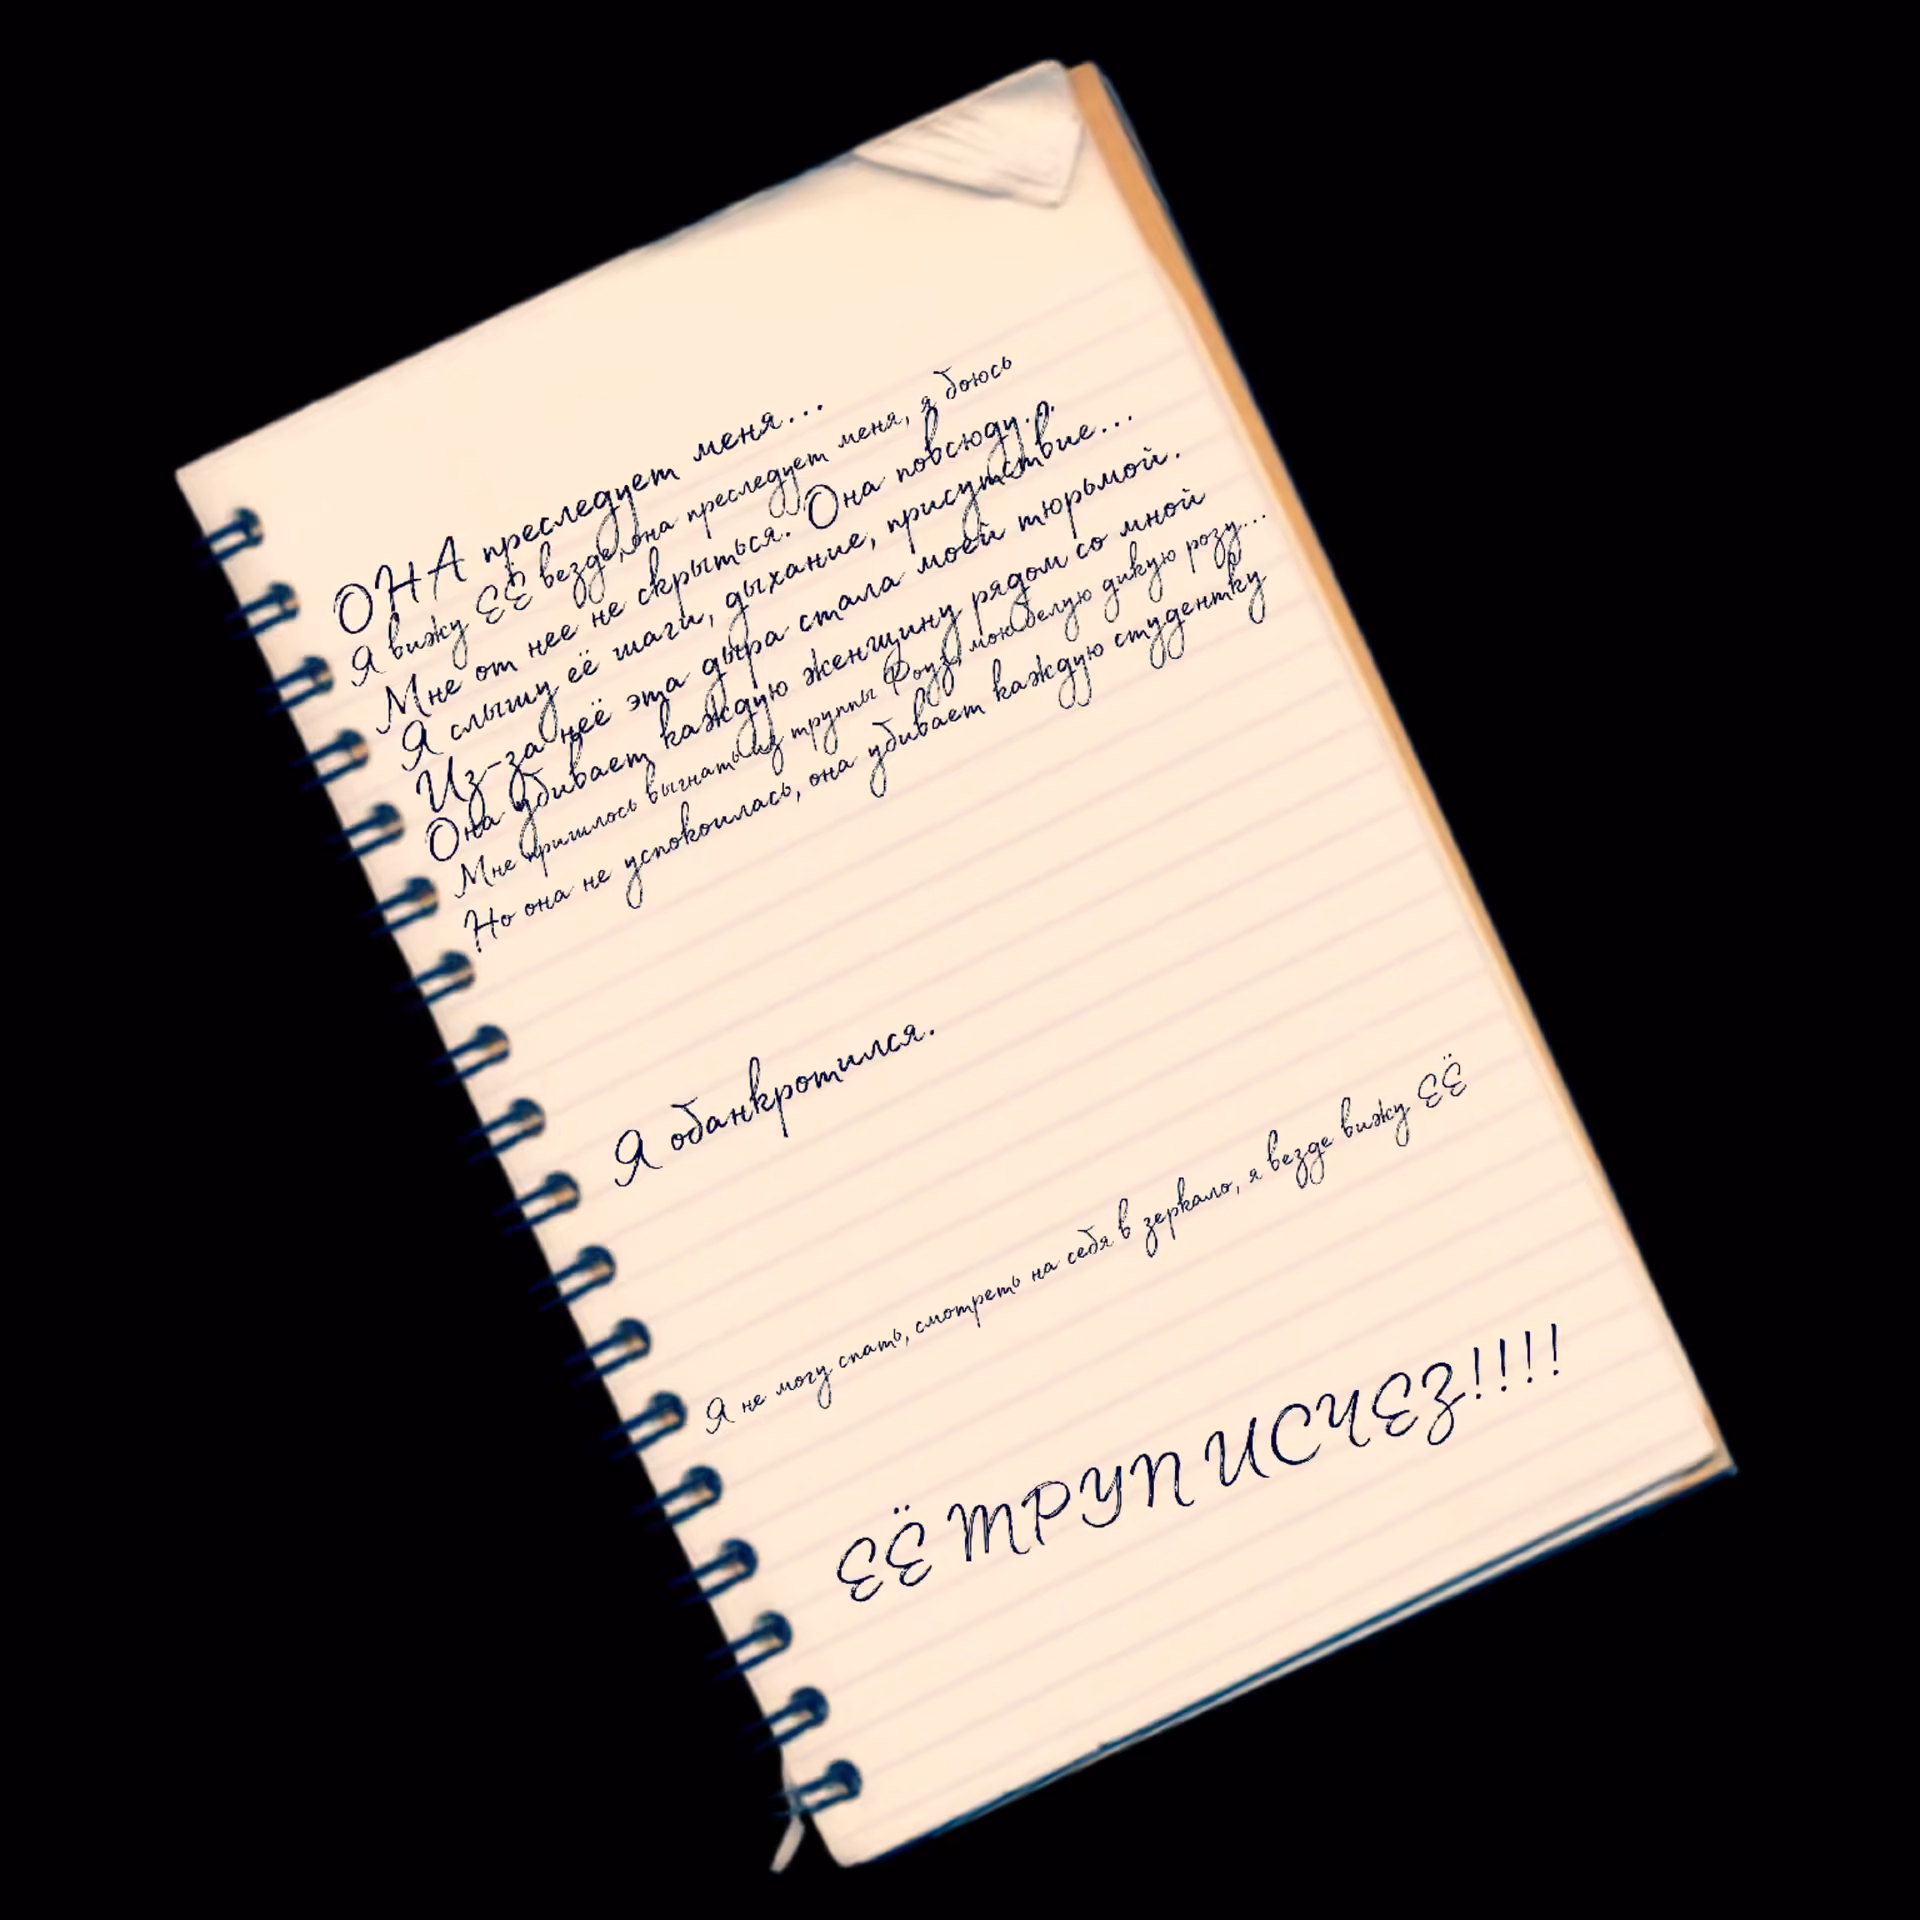 ОНА преследует меня...
Я вижу ЕЁ везде, она преследует меня, я боюсь
Мне от нее не скрыться. Она повсюду...
Я слышу её шаги, дыхание, присутствие...
Из-за неё эта дыра стала моей тюрьмой.
Она убивает каждую женщину рядом со мной
Мне пришлось выгнать из труппы Роуз, мою белую дикую розу...
Но она не успокоилась, она убивает каждую студентку
Я обанкротился.
Я не могу спать, смотреть на себя в зеркало, я везде вижу ЕЁ
ЕЁ ТРУП ИСЧЕЗ!!!!